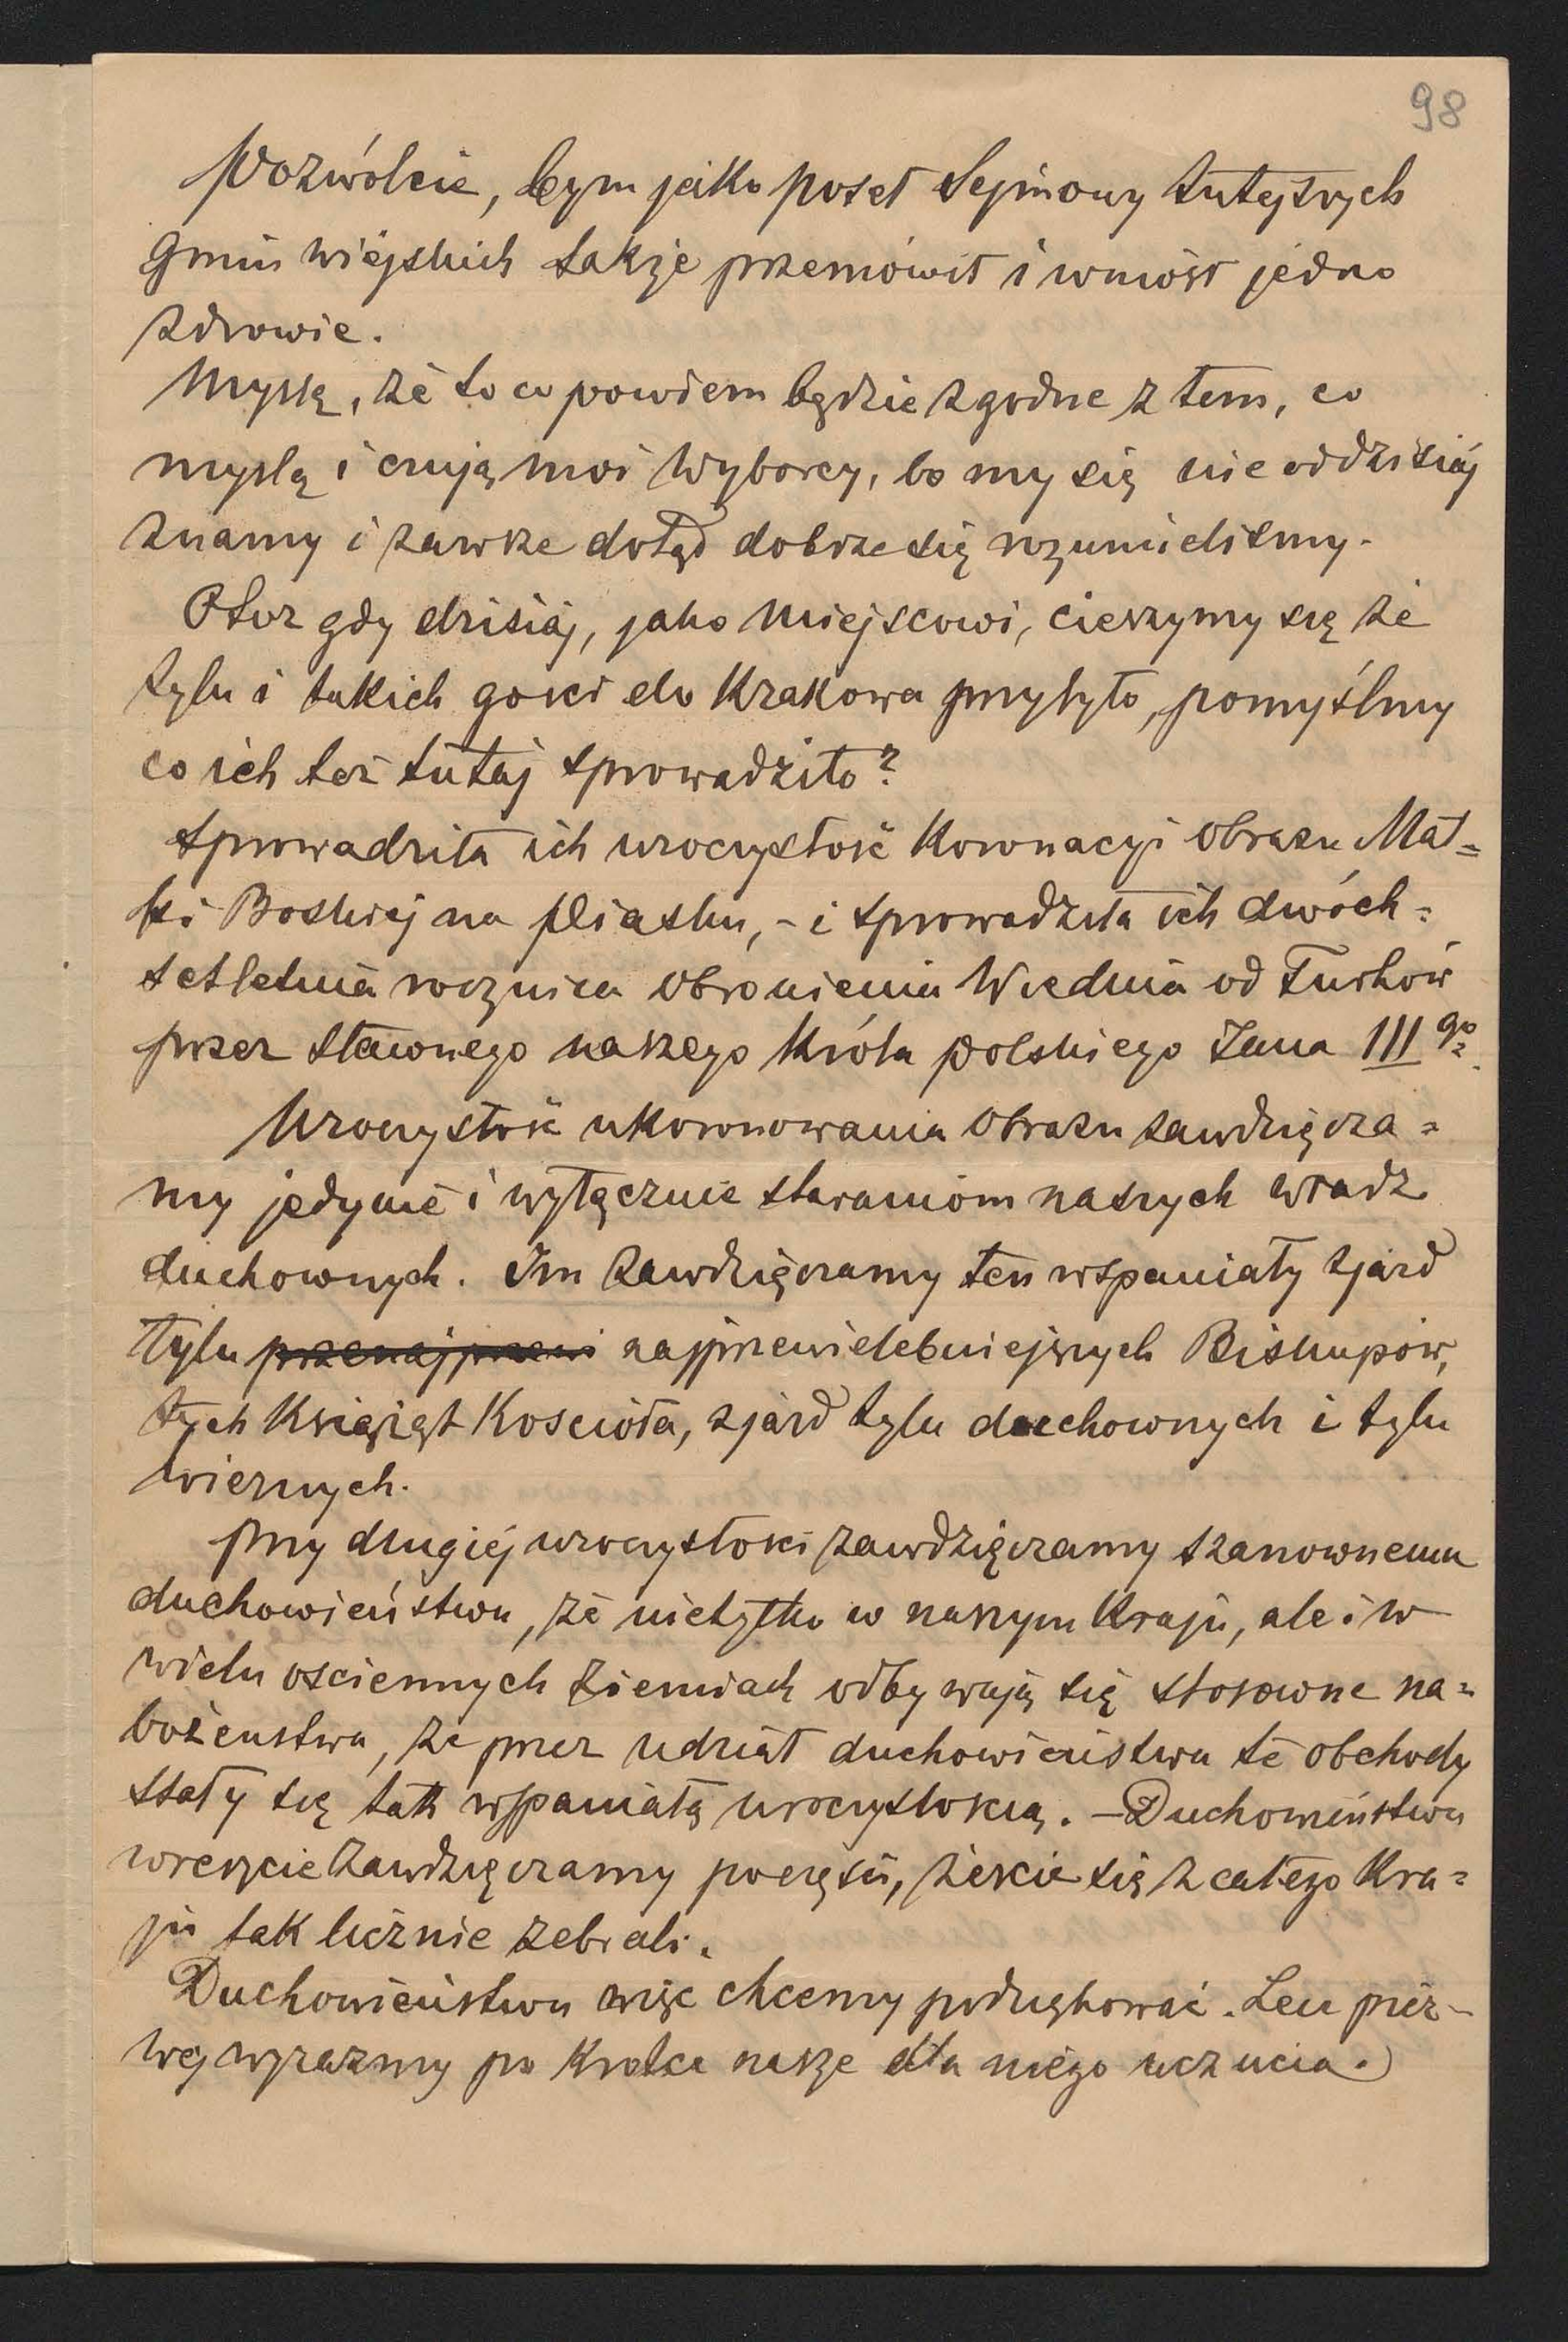 98
Pozwólcie, bym jako poseł Sejmowy tutejszych
Gmin wiejskich także przemówił i wniósł jedno
zdrowie.
Myślę, że to co powiem będzie zgodne z tem, co
myślą i czują moi Wyborcy, bo my się nie od dzisiaj
znamy i zawsze dotąd dobrze się rozumieliśmy.
Otoż gdy dzisiaj, jako miejscowi, cieszymy się że
tylu i takich gości do Krakowa przybyło, pomyślmy
co ich też tutaj sprowadziło?
Sprowadziła ich uroczystość Koronacyi obrazu Mat=
ki Boskiej na Piasku, - i sprowadziła ich dwóch=
setletnia rocznica obronienia Wiednia od Turków
przez sławnego naszego Króla polskiego Jana III go.
Uroczystość ukoronowania obrazu zawdzięcza=
my jedynie i wyłącznie staraniom naszych władz
duchownych. Im zawdzięczamy ten wspaniały zjazd
tylu przenajprzewi najprzewielebniejszych Biskupów,
tych Książąt Kościoła, zjazd tylu duchownych i tylu
wiernych.
Przy drugiej uroczystości zawdzięczamy szanownemu
duchowieństwu, że nietylko w naszym Kraju, ale i w
wielu ościennych ziemiach odbywają się stosowne na=
bożeństwa, że przez udział duchowieństwa te obchody
stały się tak wspaniałą uroczystością. - Duchowieństwu
wreszcie zawdzięczamy poczęści, żeście się z całego Kra=
ju tak licznie zebrali.
Duchowieństwu więc chcemy podziękować. Lecz pier-
wej wyrazmy po Krotce nasze dla niego uczucia.